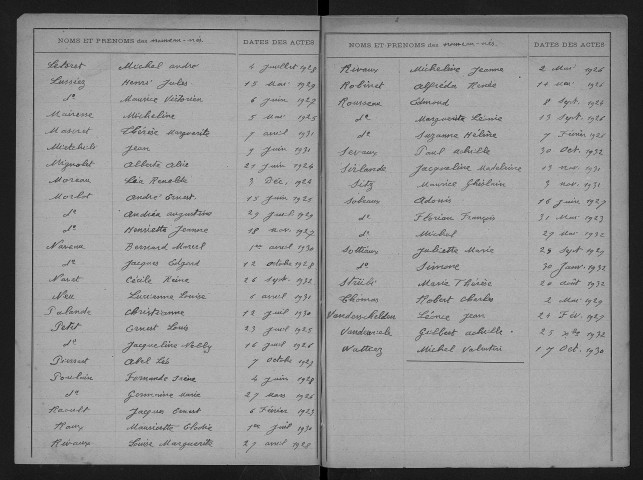 NOMS ET PRENOMS des nouveau-nés DATES DES ACTES
Leboret Michel andré 4 juillet 1928
Lussiez Henri Jules 15 mai 1929
do Maurice Victorien 6 juin 1927
Mairesse Micheline 5 mai 1925
Massret Thérèse Marguerite 7 avril 1931
Jean 9 juin 1931
Mignolet Alberte Alie 21 juin 1924
Moreau Léa Renelde 3 Déc. 1926
Morlot André Ernest 15 juin 1925
do Andréa augustine 29 juil 1929
do Henriette Jeanne 18 nov. 1927
Naveau Bernard Marcel 1er avril 1930
do Jacques Edgard 12 octobre 1928
Naret Cécile Reine 26 sept. 1932
Neu Lucienne Louise 1 avril 1931
Palande Christianne 12 juil 1930
Petit Ernest Louis 23 juil 1925
do Jacqueline Nelly 16 juil 1926
Abel Léo 7 octobre 1929
Poulain Fernande Irène 4 juin 1928
do Germaine Marie 27 mars 1926
Raoult Jacques Ernest 6 Février 1923
Roux Mauricette Elodie 1er juil 1930
Rivaux Louise Marguerite 27 avril 1928
NOMS ET PRENOMS des nouveau-nés DATES DES ACTES
Rivaux Micheline Jeanne 2 Mai 1926
Robinet Alfréda Renée 14 mai 1926
Rousseau Edmond 8 sept. 1926
do Marguerite Léonie 19 sept. 1928
do Suzanne Hélène 7 Février 1928
Sevaux Paul achille 30 Oct. 1932
Sirlande Jacqueline Madeleine 13 nov. 1931
Sitz Maurice Ghislain 3 nov. 1931
Sobeaux Adonis 16 juin 1927
do Florian François 31 Mai 1923
do Michel 27 mai 1932
Sotteaux Juliette Marie 29 Sept 1929
do Simone 30 Janv. 1932
Marie Thérèse 20 août 1932
Thomas Robert Charles 2 Mai 1929
Vanderschelden Léonce Jean 24 Fév. 1927
Gilbert achille 25 Xbre 1932
Watticez Michel Valentin 17 Oct. 1930